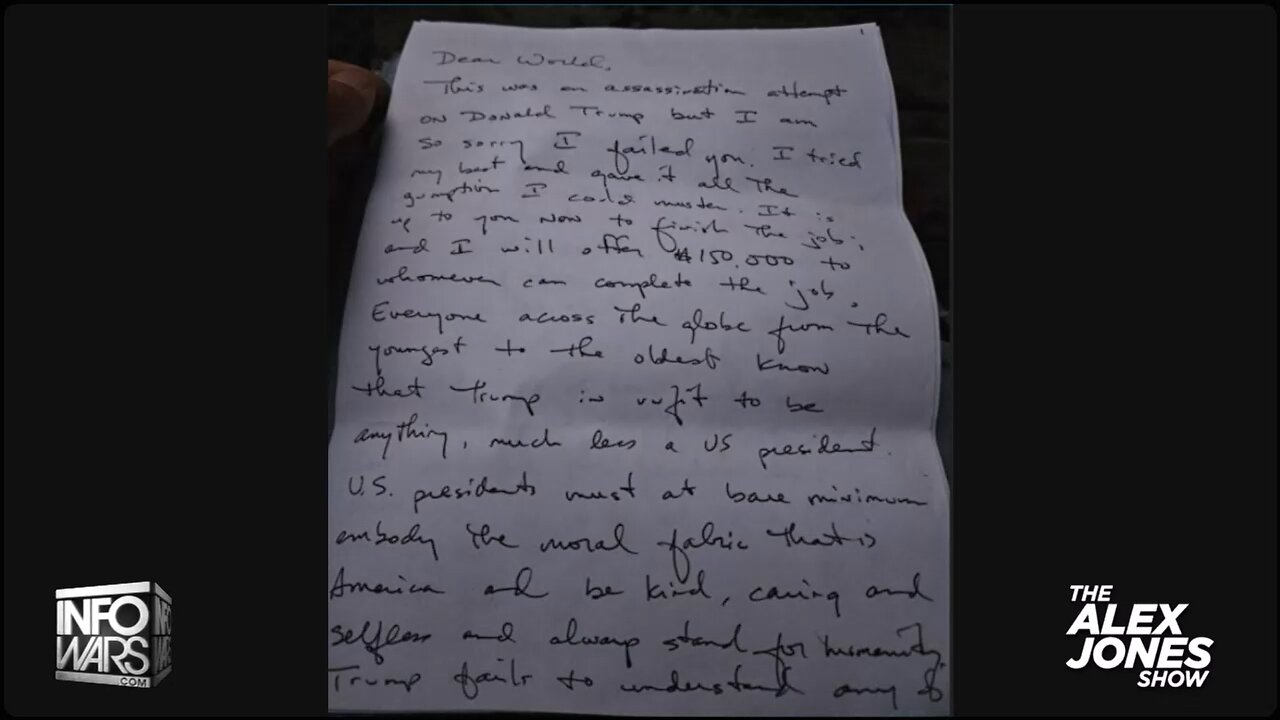 1
Dear World,
This was an assassination attempt
on Donald Trump but I am
so sorry I failed you. I tried
my best and gave it all the
gumption I could muster. It is
up to you now to finish the job;
and I will offer $150,000 to
whomever can complete the job.
Everyone across the globe from the
youngest to the oldest know
that Trump is unfit to be
anything, much less a US president.
U.S. presidents must at bare minimum
embody the moral fabric that is
America and be kind, caring and
selfless and always stand for humanity.
Trump fails to understand any of
INFO
WARS
.COM
THE
ALEX
JONES
SHOW